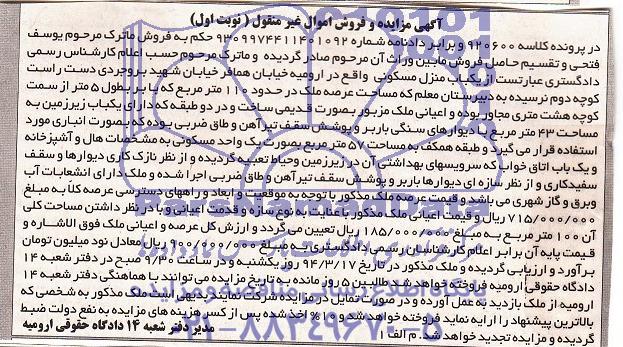 آگهی مزایده و فروش اموال غیر منقول ( نوبت اول)
در پرونده کلاسه ۹۲۰۶۰۰ و برابر دادنامه شماره ۹۳۰۹۹۷۴۴۱۱۴۰۱۰۹۲ حکم به فروش ماترک مرحوم یوسف
فتحی و تقسیم حاصل فروش مابین وراث آن مرحوم صادر گردیده و ماترک مرحوم حسب اعلام کارشناس رسمی
دادگستری عبارتست از یکباب منزل مسکونی واقع در ارومیه خیابان همافر خیابان شهید بروجردی دست راست
کوچه دوم نرسیده به دبیرستان معلم که مساحت عرصه ملک در حدود ۱۱۰ متر مربع که با بر بطول ۵ متر از سمت
کوچه هشت متری مجاور بوده و اعیانی ملک مزبور بصورت قدیمی ساخت و در دو طبقه که دارای یکباب زیرزمین به
مساحت ۴۳ متر مربع با دیوارهای سنگی باربر و پوشش سقف تیرآهن و طاق ضربی بوده که بصورت انباری مورد
استفاده قرار می گیرد و طبقه همکف به مساحت ۵۷ متر مربع بصورت یک واحد مسکونی به مشخصات هال و آشپزخانه
و یک باب اتاق خواب که سرویسهای بهداشتی آن در زیرزمین وحیاط تعبیه گردیده و از نظر نازک کاری دیوارها و سقف
سفیدکاری و از نظر سازه ای دیوارها باربر و پوشش سقف تیرآهن و طاق ضربی اجرا شده و ملک دارای انشعابات آب
وبرق و گاز شهری می باشد و قیمت عرصه ملک مذکور با توجه به موقعیت و ابعاد و راههای دسترسی عرصه کلاً به مبلغ
۷۱۵/۰۰۰/۰۰۰ ریال و قیمت اعیانی ملک مذکور با عنایت به نوع سازه و قدمت اعیانی و با در نظر داشتن مساحت کلی
آن ۱۰۰ متر مربع به مبلغ ۱۸۵/۰۰۰/۰۰۰ ریال تعیین می گردد و ارزش کل عرصه و اعیانی ملک فوق الاشاره و
قیمت پایه آن برابر اعلام کارشناسان رسمی دادگستری به مبلغ ۹۰۰/۰۰۰/۰۰۰ ریال معادل نود میلیون تومان
برآورد و ارزیابی گردیده و ملک مذکور در تاریخ ۹۴/۳/۱۷ روز یکشنبه و در ساعت ۹/۳۰ صبح در دفتر شعبه ۱۴
دادگاه حقوقی ارومیه فروخته خواهد شد مطالبین ۵ روز مانده به تاریخ مزایده می توانند با هماهنگی دفتر شعبه ۱۴
ارومیه از ملک بازدید به عمل آورده و در صورت تمایل در مزایده شرکت نمایند بدیهی است ملک مذکور به شخصی که
بالاترین پیشنهاد را ارایه نماید فروخته خواهد شد و ۱۰% اخذ شده پس از کسر هزینه های مزایده به نفع دولت ضبط
و مزایده تجدید خواهد شد. م الف ۱
مدیر دفتر شعبه ۱۴ دادگاه حقوقی ارومیه
ParsNamadData
۰۲۱-۸۸۳۴۹۶۷۰-۵